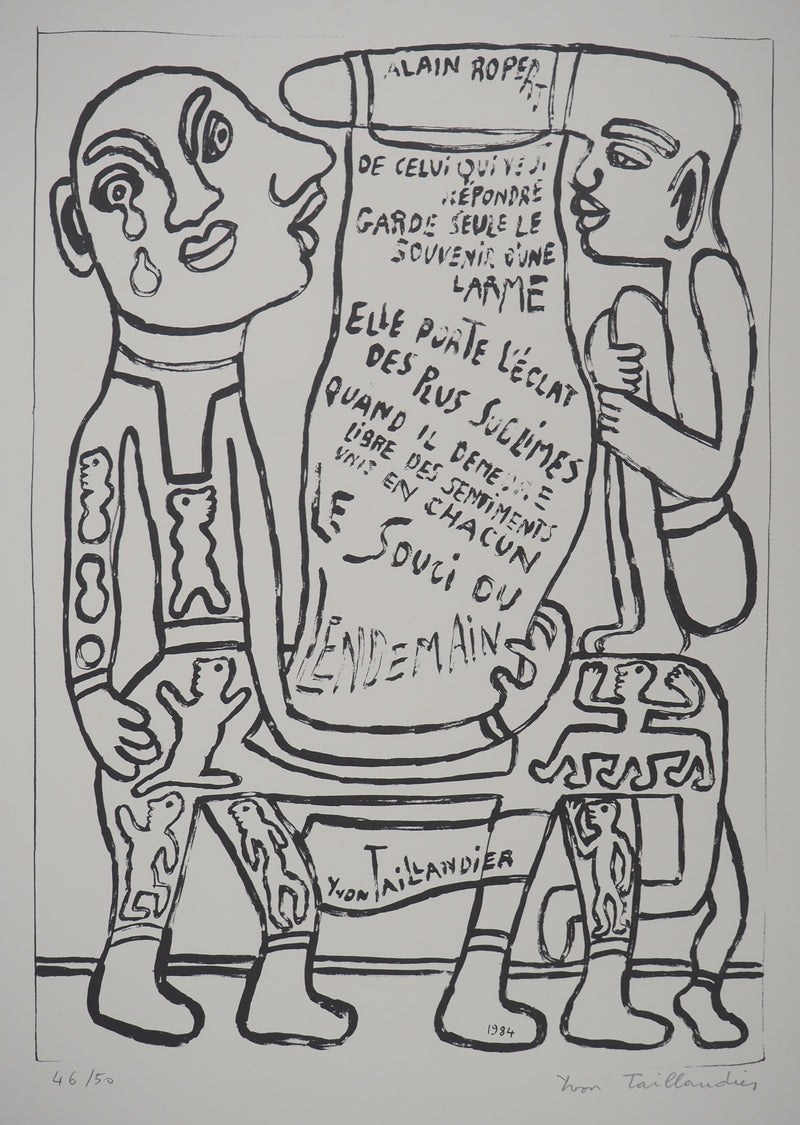 ALAIN ROPERT
DE CELUI QUI VEUT
RÉPONDRE
GARDE SEULE LE
SOUVENIR D'UNE
LARME
ELLE PORTE L'ÉCLAT
DES PLUS SUBLIMES
QUAND IL DEMEURE
LIBRE DES SENTIMENTS
UNIS EN CHACUN
LE SOUCI DU
LENDEMAIN
YVON TAILLANDIER
1984
46/50
Yvon Taillandier